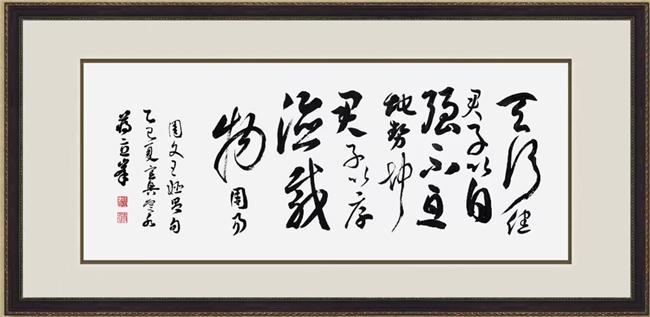 天行健
君子以自
强不息
地势坤
君子以厚
德载
物 周易
周文王姬昌句
乙巳夏